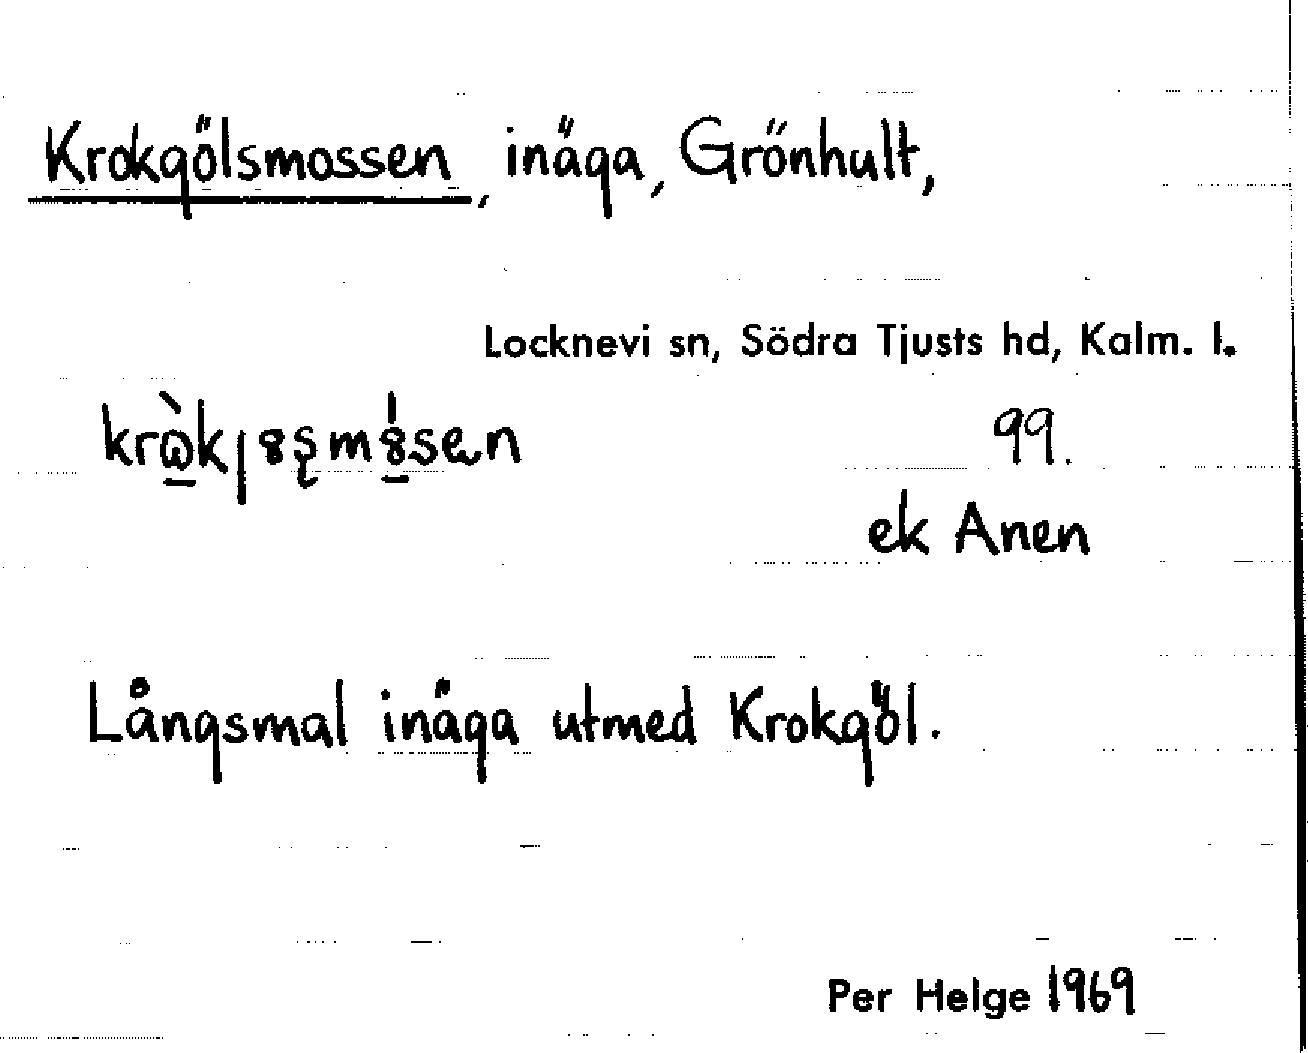 Krokgölsmossen, inäga, Grönhult,
Locknevi sn, Södra Tjusts hd, Kalm. l.
99.
ek Anen
Långsmal inäga utmed Krokgöl.
Per Helge 1969